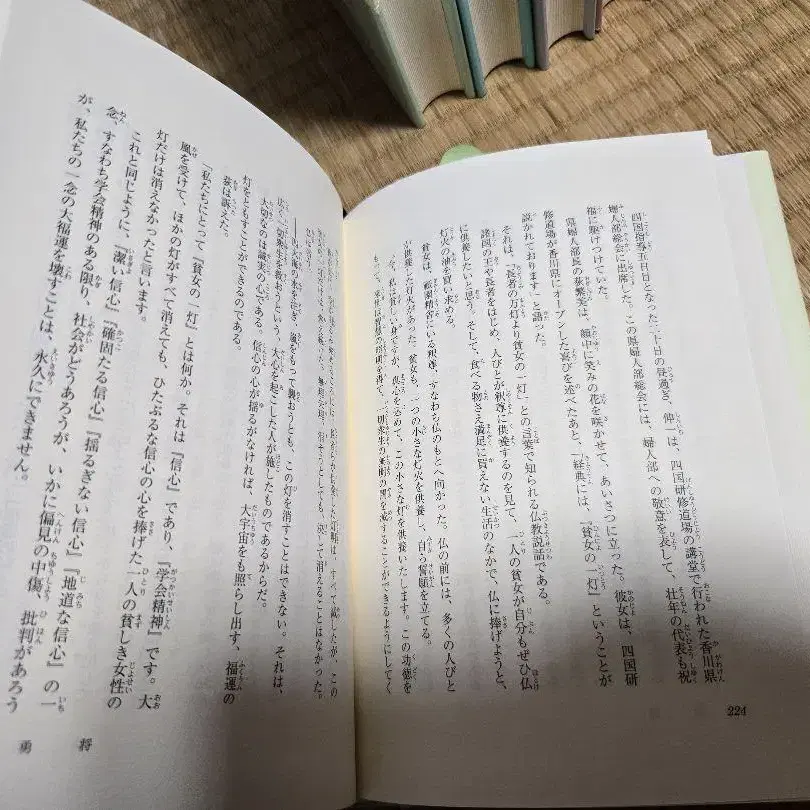 四国指導五日目となった二十日の昼過ぎ、伸一は、四国研修道場の講堂で行われた香川県
婦人部総会に出席した。この県婦人部総会には、婦人部への敬意を表して、壮年の代表も祝
福に駆けつけていた。
県婦人部長の萩繁美は、顔中に笑みの花を咲かせて、あいさつに立った。彼女は、四国研
修道場が香川県にオープンした喜びを述べたあと、「経典には、『貧女の一灯』ということが
説かれております」と語った。
それは、「長者の万灯より貧女の一灯」との言葉で知られる仏教説話である。
諸国の王や長者をはじめ、人びとが釈尊に供養するのを見て、一人の貧女が自分もぜひ仏
に供養したいと思う。そして、食べる物さえ満足に買えない生活のなかで、仏に捧げようと、
灯火の油を買い求める。
貧女は、祇園精舎にいる釈尊、すなわち仏のもとへ向かった。仏の前には、多くの人びと
が供養した灯火があった。貧女も、一つの小さな灯火を供養し、自ら誓願を立てる。
今、私は貧しい身ですが、真心を込めて、この小さな灯を供養いたします。この功徳を
もって、来世は智慧の照明を得て、一切衆生の無明の闇を滅することができるようにしてく
224
すべて消えたが、この
消そうとしても、決して消えることはなかった。
――四海の水を注ぎ、嵐をもって襲おうとも、この灯を消すことはできない。それは、
広く一切衆生を救おうという、大心を起こした人が施したものであるからだ。
大切なのは誠実の心である。信心の心が揺るがなければ、大宇宙をも照らし出す、福運の
灯をともすことができるのである。
萩は訴えた。
「私たちにとって『貧女の一灯』とは何か。それは『信心』であり、『学会精神』です。大
風を受けて、ほかの灯がすべて消えても、ひたぶるな信心の心を捧げた一人の貧しき女性の
灯だけは消えなかったと言います。
これと同じように、『潔い信心』『確固たる信心』『揺るぎない信心』『地道な信心』の一
念、すなわち学会精神のある限り、社会がどうあろうが、いかに偏見の中傷、批判があろう
が、私たちの一念の大福運を壊すことは、永久にできません。
勇 将